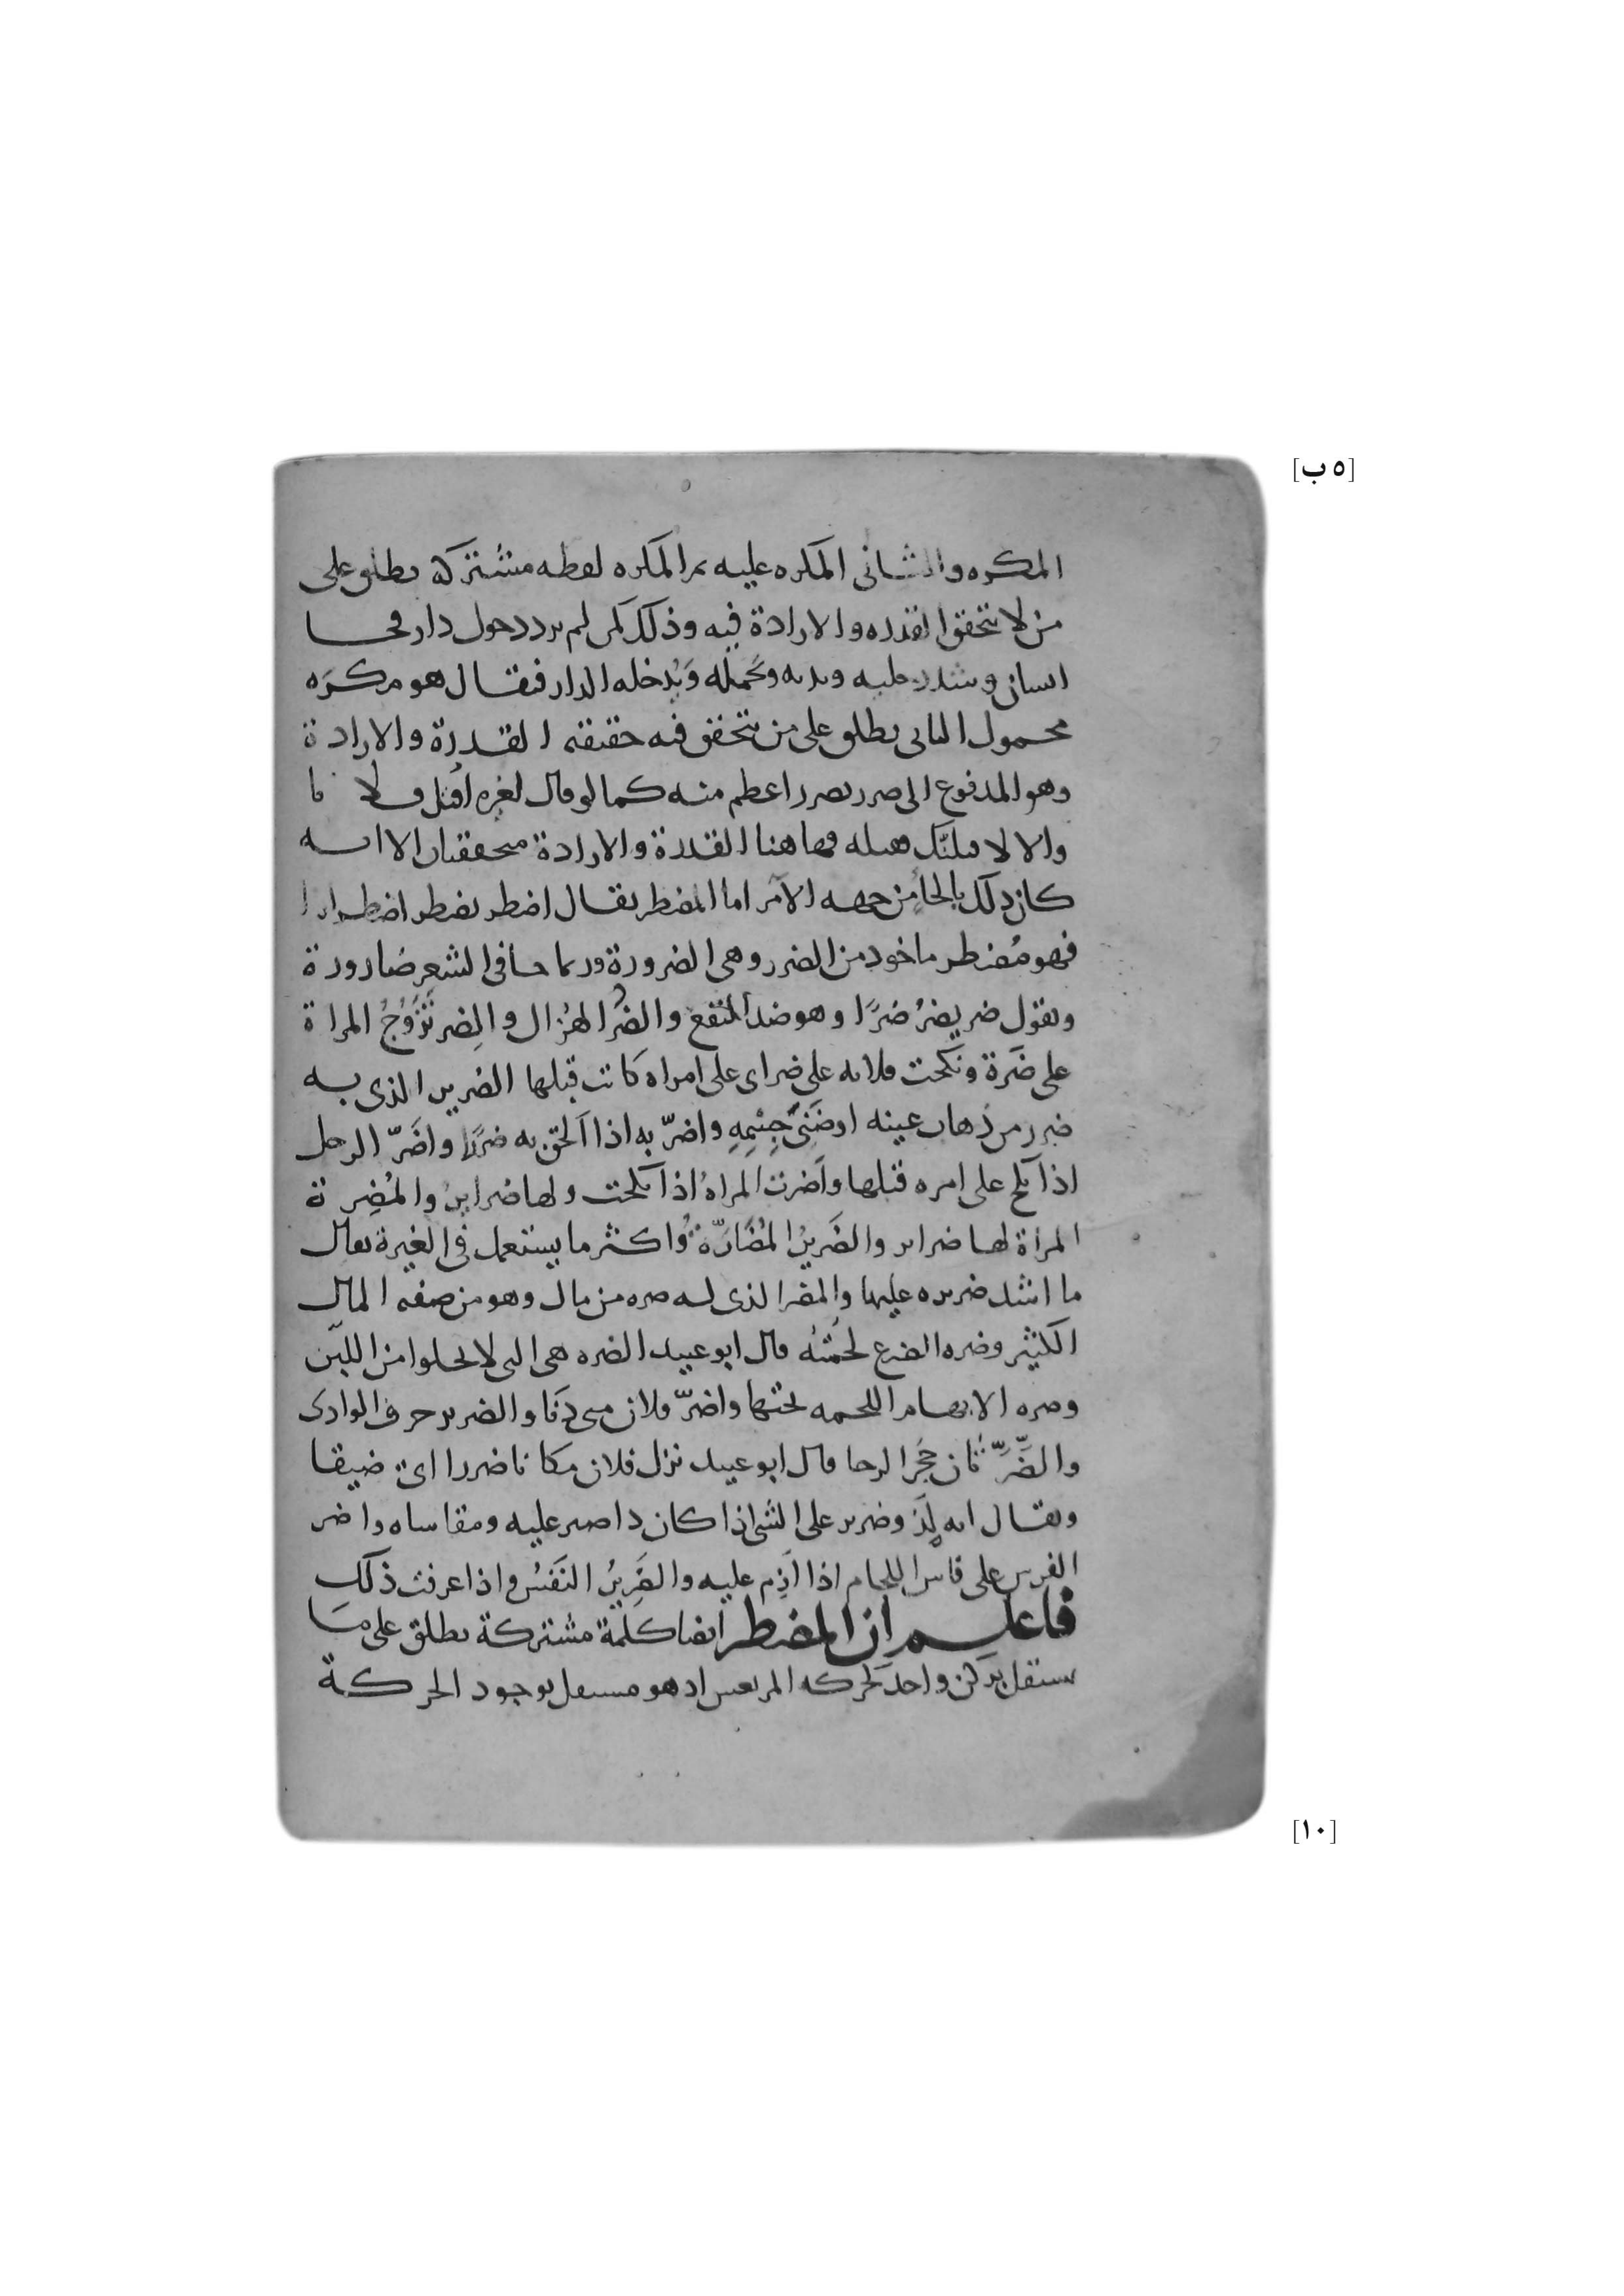 [٥ ب]
المكره والثاني المكره عليه ثم المكره لفظه مشتركة يطلق على
من لا يتحقق القدره والارادة فيه وذلك كمن لم يرد دخول دار فجا
انسان وشد رجليه ويديه وحمله ويدخله الدار فيقال هو مكره
محمول الثاني يطلق على من يتحقق فيه حقيقه القدرة والارادة
وهو المدفوع الى ضرر بضرر اعظم منه كما لو قال لغيره اقتل فلانا
والا لا قتلنك فقتله فهاهنا القدرة والارادة متحققتان الا انه
كان ذلك بالجاء من جهه الآمر اما المضطر يقال اضطر يضطر اضطرارا
فهو مُضطر ماخوذ من الضرر وهى الضرورة وربما جا في الشعر ضارورة
وتقول ضر يضرُ ضرًا وهو ضد النفع والضُر الهُزال والضِر تَزَوُّجُ المراة
على ضَرة ونكحت فلانه على ضر اى على امراه كانت قبلها الضرير الذى به
ضرر من ذهاب عينه او ضَنَى جِسْمِهِ واضرّ به اذا اَلحق به ضررًا واضَرّ الرجل
اذا نكح على امره قبلها واَضرت المراهُ اذا نكحت ولها ضرايرُ والمُضِرة
المراة لها ضراير والضَريرُ المُضَارَّةُ واكثر ما يستعمل في الغيرة يقال
ما اشد ضريره عليها والمضر الذى له ضره من مال وهو من صفه المال
الكثير وضره الضرع لحمتُهُ قال ابو عبيد الضره هى التى لا تخلوا من اللبن
وضره الابهام اللحمه تحتها واضرّ فلان منى دنا والضرير حرف الوادى
والضَّرَّتان حَجَر الرحا قال ابو عبيد نزل فلان مكانا ضررا اى ضيقا
ويقال انه لذو ضرير على الشى اذا كان ذا صبر عليه ومقاساه واضر
الفرس على فاس اللجام اذا اَزِم عليه والضَرِيرُ النَفَسُ واذا عرفت ذلك
فاعلم ان المضطر ايضا كلمة مشتركة يطلق على ما
يستقل بركن واحد كحركه المرتعش اذ هو مستقل بوجود الحركة
[١٠]